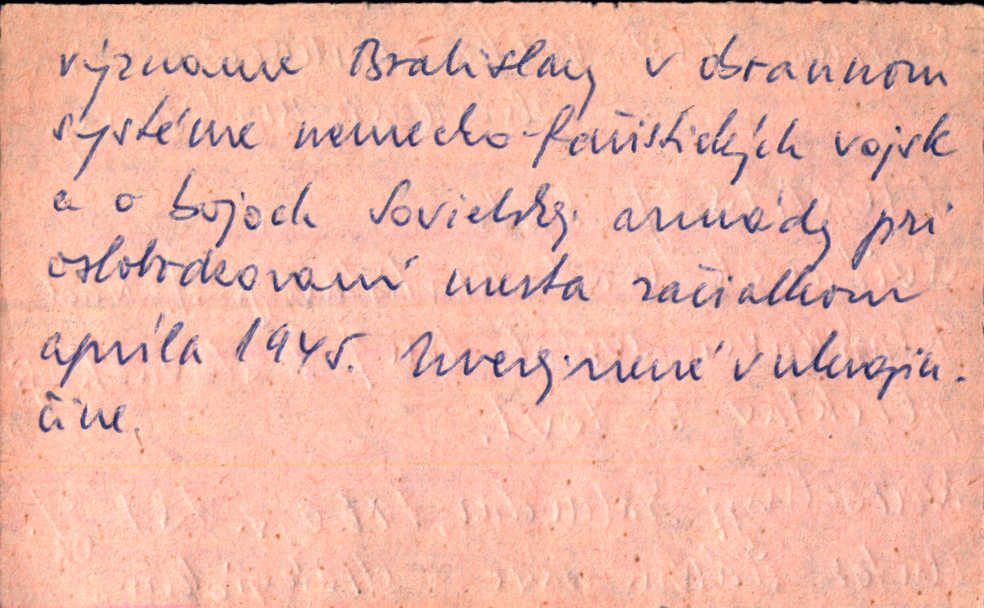 význame Bratislavy v obrannom
systéme nemecko-fašistických vojsk
a o bojoch Sovietskej armády pri
oslobodzovaní mesta začiatkom
apríla 1945. Uverejnené v ukrajin-
čine.